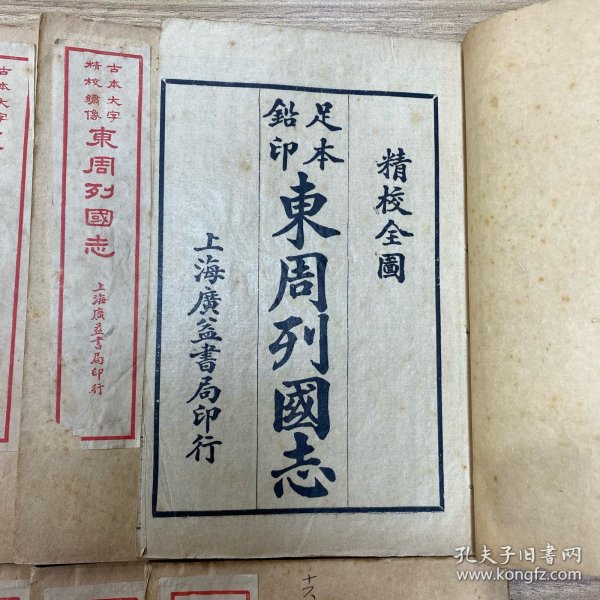 精校全圖
足本
鉛印
東周列國志
上海廣益書局印行
古本大字
精校繡像
東周列國志
上海廣益書局印行
古本大字
十六
孔夫子旧书网
www.kongfz.com